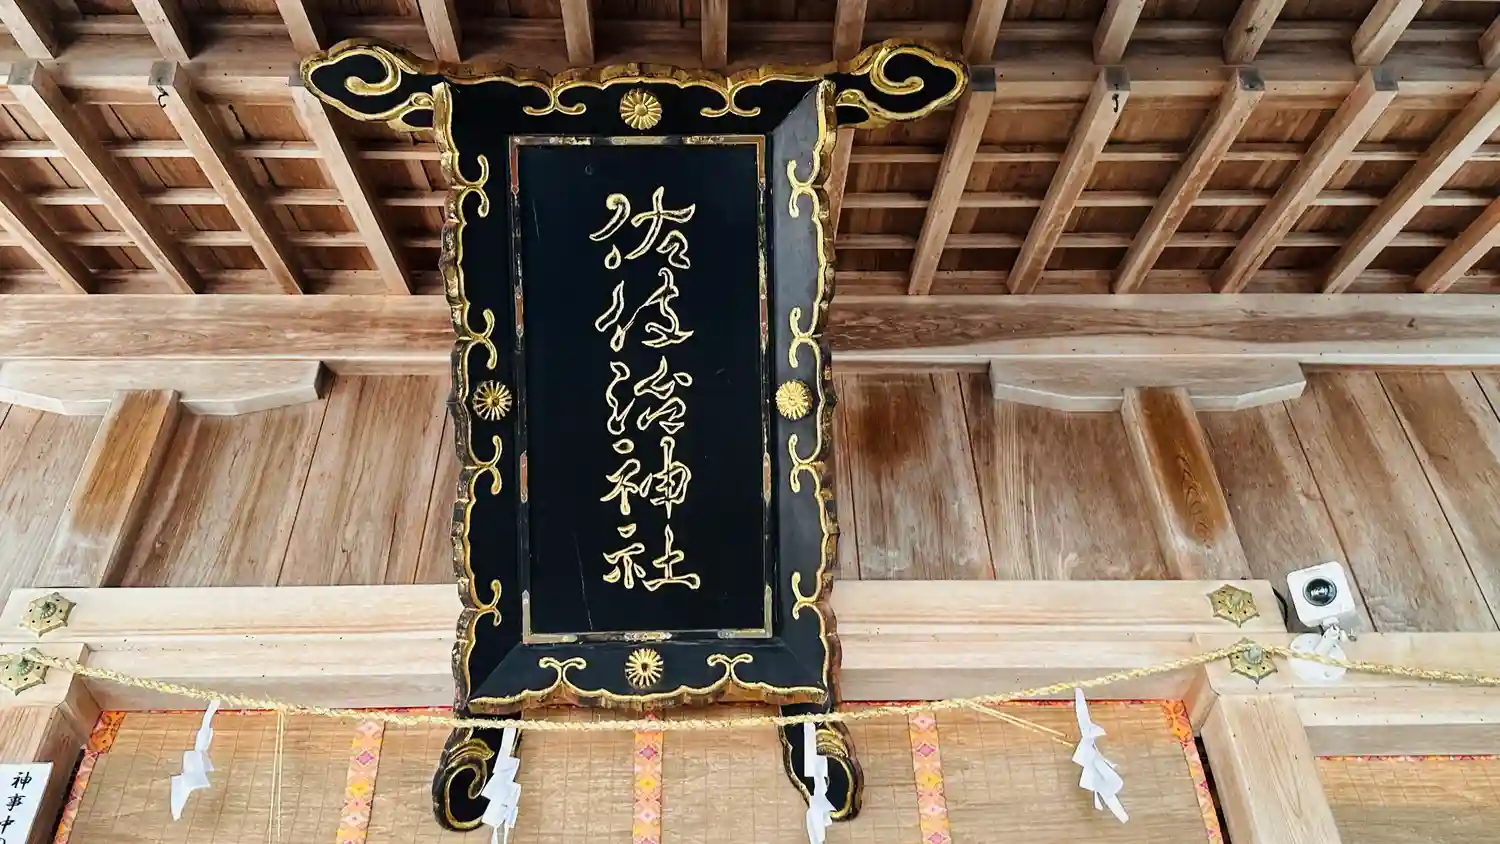 佐枝治神社
神事中